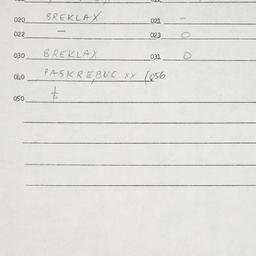 020 BREKLAX 021 -
022 - 023 O
030 BREKLAX 031 O
040 PASKREBUC xx /056
050